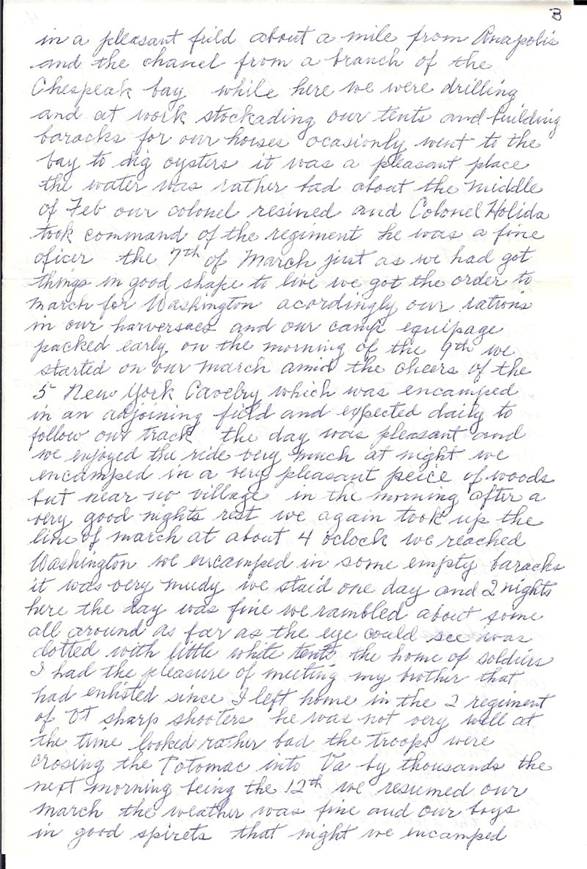 3
in a pleasant field about a mile from Anapolis
and the chanel from a branch of the
Chespeak bay while here we were drilling
and at work stockading our tents and building
baracks for our horses ocasionly went to the
bay to dig oysters it was a pleasant place
the water was rather bad about the middle
of Feb our colonel resined and Colonel Holida
took command of the regiment he was a fine
oficer the 7th of March just as we had got
things in good shape to live we got the order to
march for Washington acordingly our rations
in our haversacs and our camp equipage
packed early on the morning of the 9th we
started on our march amid the cheers of the
5 New York Cavelry which was encamped
in an adjoining field and expected daily to
follow our track the day was pleasant and
we enjoyed the ride very much at night we
encamped in a very pleasant peice of woods
but near no village in the morning after a
very good nights rest we again took up the
line of march at about 4 oclock we reached
Washington we encamped in some empty baracks
it was very mudy we staid one day and 2 nights
here the day was fine we rambled about some
all around as far as the eye could see was
dotted with little white tents the home of soldiers
I had the pleasure of meeting my brother that
had enlisted since I left home in the 2 regiment
of Vt sharp shooters he was not very well at
the time looked rather bad the troops were
crosing the Potomac into Va by thousands the
next morning being the 12th we resumed our
march the weather was fine and our boys
in good spirets that night we encamped